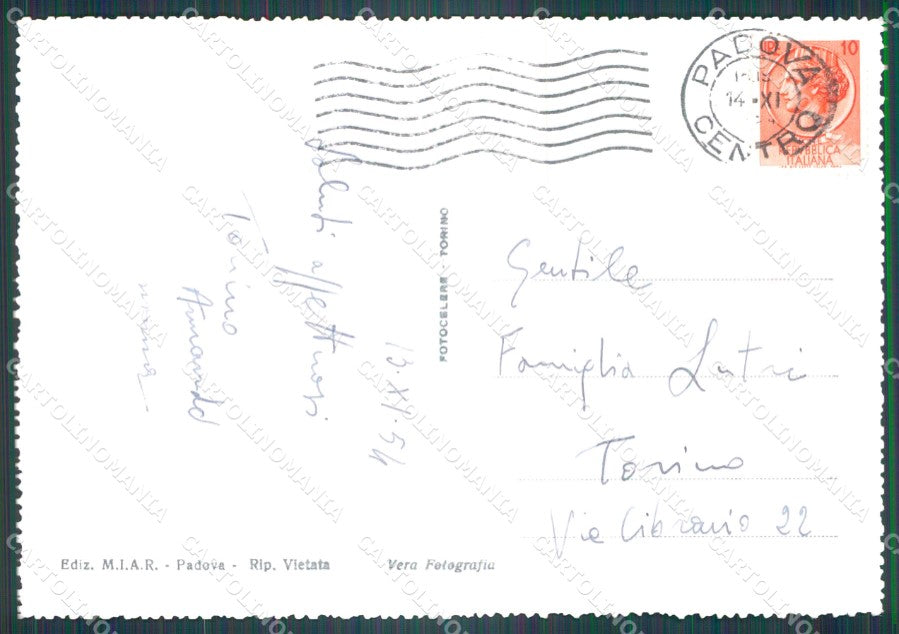 PADOVA
CENTRO
14 XI
10
REPUBBLICA
ITALIANA
Saluti affettuosi
Torino
Armando
13.XI.54
FOTOCELERE TORINO
Gentile
Famiglia
Torino
Via Cibrario 22
Ediz. M.I.A.R. - Padova - Rip. Vietata
Vera Fotografia
CARTOLINOMANIA